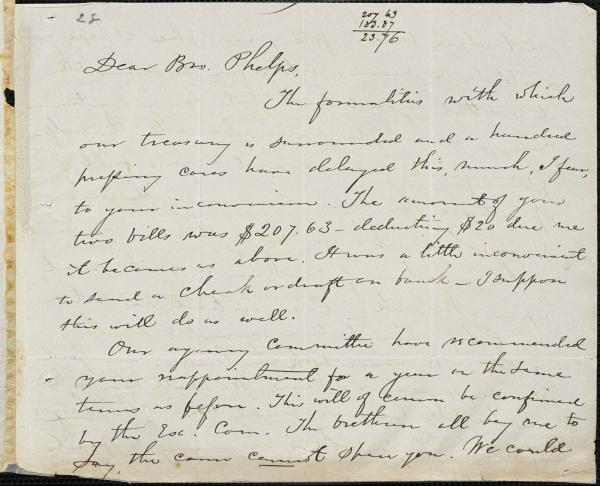 28
207 63
183.87
23.76
Dear Bro. Phelps,
The formalities with which
our treasury is surrounded and a hundred
pressing cares have delayed this, much, I fear,
to your inconvenience. The amount of your
two bills was $207.63 - deducting $20 due me
it becomes as above. It was a little inconvenient
to send a check or draft on bank - I suppose
this will do as well.
Our agency committee have recommended
your reappointment for a year on the same
terms as before. This will of course be confirmed
by the Exe. Com. The brethren all beg me to
say, the cause cannot spare you. We could